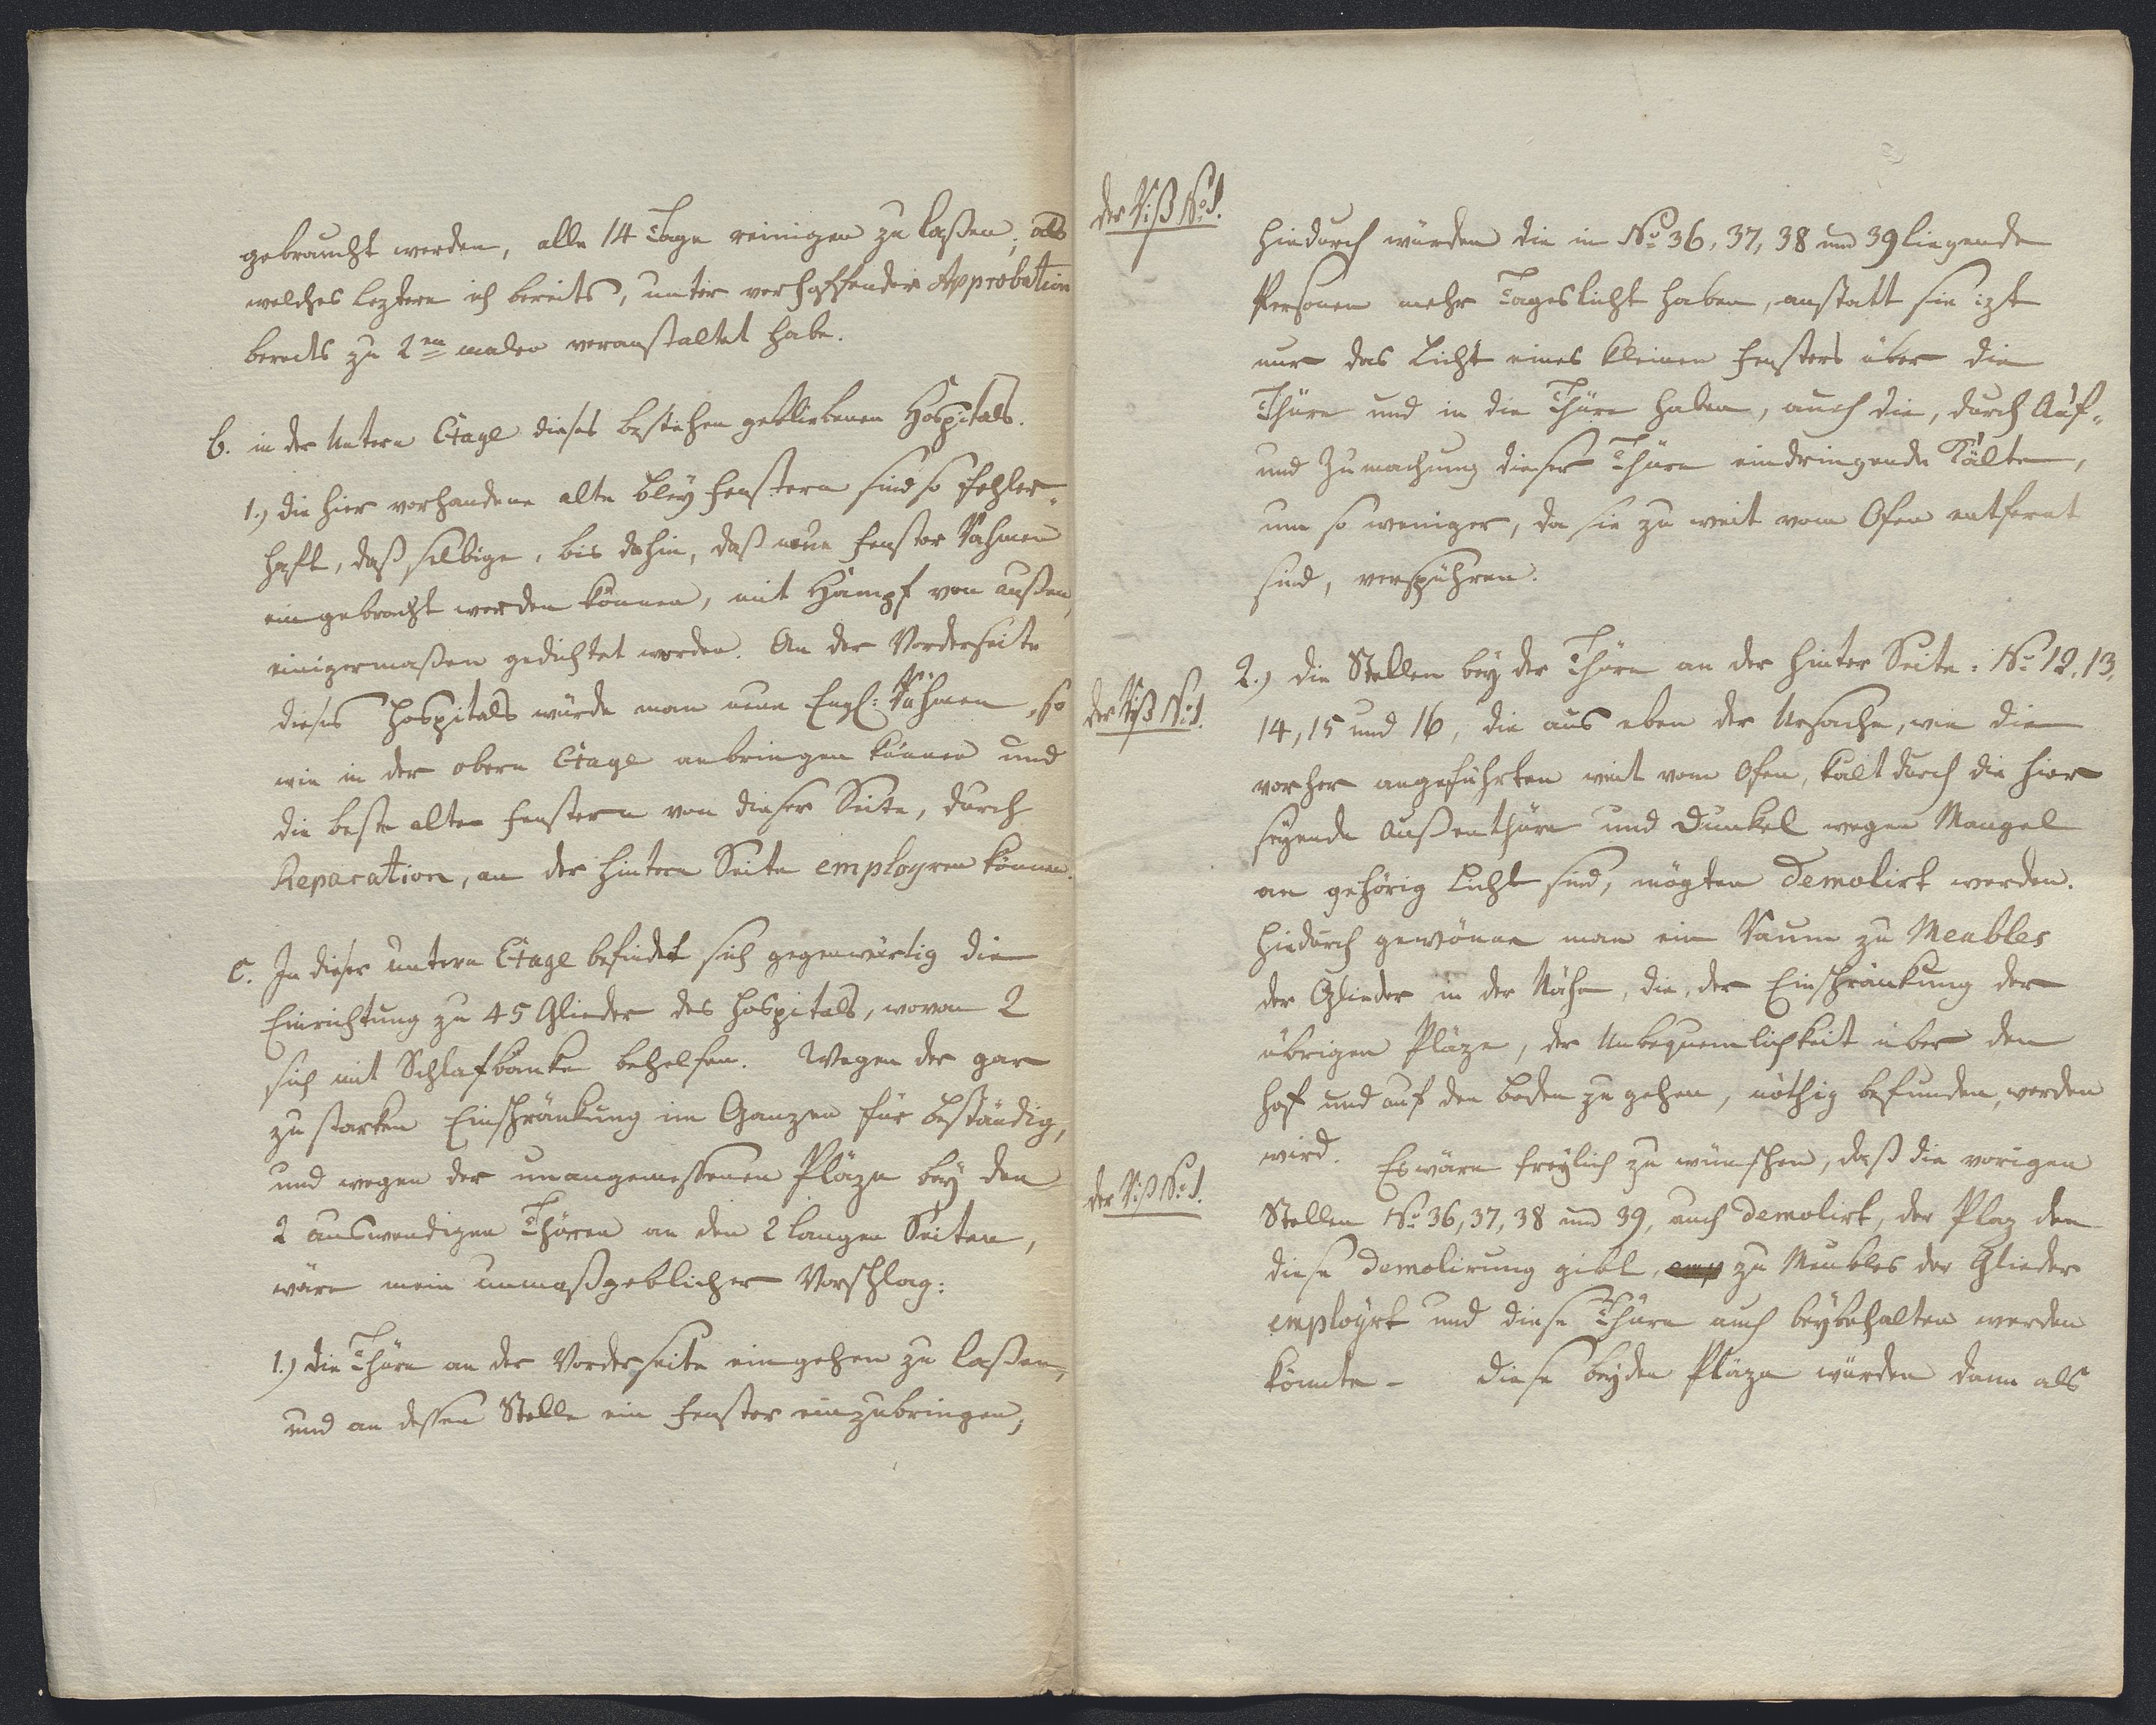 gebraucht werden, alle 14 Tage reinigen zu laßen; als
welches leztere ich bereits, unter verhoffender Approbation
bereits zu 2ten malen veranstaltet habe.
b. in der Untern Etage dieses bestehen gebliebenen Hospitals.
1.) die hier vorhandene alte Bley Fenstern sind so fehler-
haft, daß selbige, bis dahin, daß neue Fenster Rahmen
eingebracht werden können, mit Hampf von außen,
einigermaßen gedichtet worden. An der Vorderseite
dieses Hospitals würde man neue Engl: Rahmen, so
wie in der obern Etage anbringen können und
die beste alte Fenstern von dieser Seite, durch
Reparation, an der hintern Seite employren können.
c. In dieser untern Etage befindet sich gegenwärtig die
Einrichtung zu 45 Glieder des Hospitals, wovon 2
sich mit Schlafbänke behelfen. Wegen der gar
zu starken Einschränkung im Ganzen für beständig,
und wegen der unangemessenen Pläze bey den
2 auswendigen Thüren an den 2 langen Seiten,
wäre mein unmaßgeblicher Vorschlag:
1.) die Thüre an der Vorderseite eingehen zu laßen,
und an dessen Stelle ein Fenster einzubringen,
der Riß No 1.
hiedurch würden die in No 36, 37, 38 und 39 liegende
Personen mehr Tageslicht haben, anstatt sie izt
nur das Licht eines kleinen Fensters über die
Thüre und in die Thüre haben, auch die, durch Auf-
und Zumachung dieser Thüre eindringende Kälte,
um so weniger, da sie zu weit vom Ofen entfernt
sind, verspühren.
2.) die Stellen bey der Thüre an der hinter Seite: No 12, 13,
der Riß No 1.
14, 15 und 16, die aus eben der Ursache, wie die
vorher angeführten weit vom Ofen, kalt durch die hier
seyende Außenthüre und Dunkel wegen Mangel
an gehörig Licht sind, mögten demolirt werden.
hiedurch gewönne man ein Raum zu Meubles
der Glieder in der Nähe, die, der Einschränkung der
übrigen Pläze, der Unbequemlichkeit über den
Hof und auf den Boden zu gehen, nöthig befunden, werden
wird. Es wäre freylich zu wünschen, daß die vorigen
der Riß No 1.
Stellen No 36, 37, 38 und 39, auch demolirt, der Plaz den
diese Demolirung gibt, zu Meubles der Glieder
employrt und diese Thüre auch beybehalten werden
könnte - diese beyden Pläze würden dann als